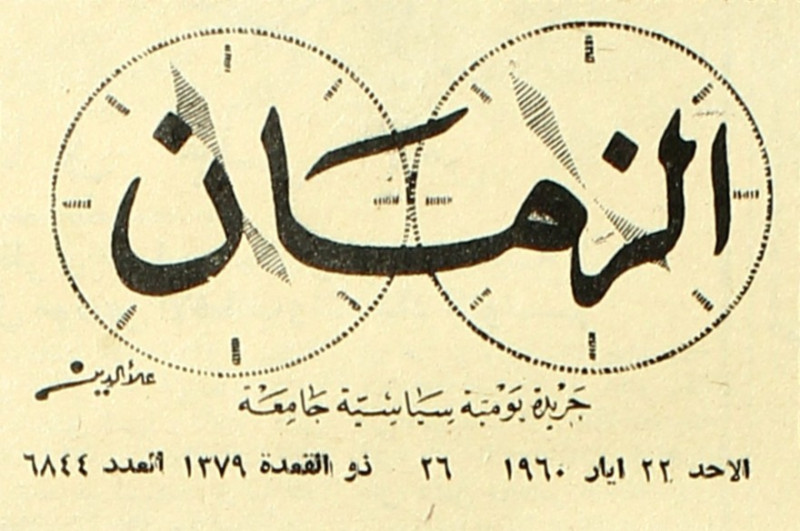 الزمان
علاءالدين
جريدة يومية سياسية جامعة
الاحد ٢٢ ايار ١٩٦٠ ٢٦ ذو القعدة ١٣٧٩ العدد ٦٨٤٤